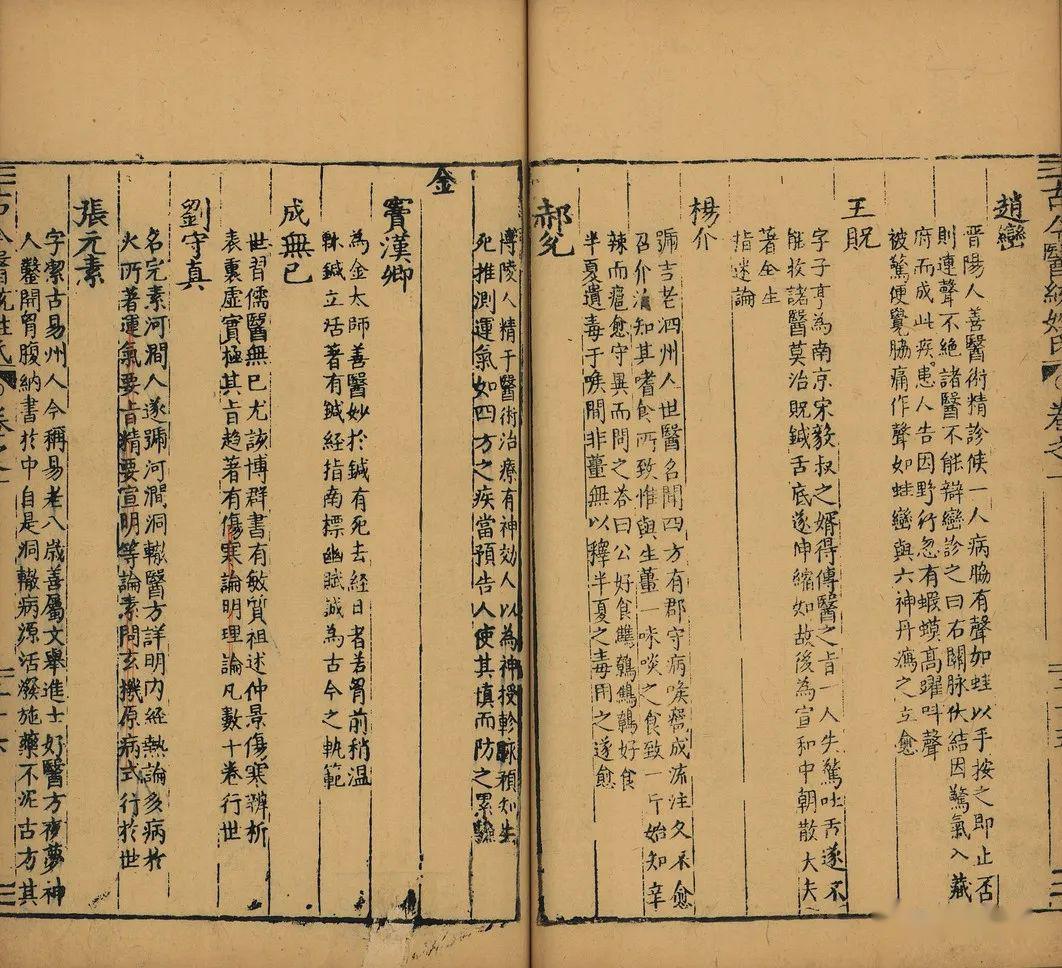 趙巒
晉陽人善醫術精診候一人病脇有聲如蛙以手按之即止否
則連聲不絕諸醫不能辯巒診之曰右關脉伏結因驚氣入藏
府而成此疾患人告因野行忽有蝦蟆高躍呌聲
被驚便覺脇痛作聲如蛙巒與六神丹瀉之立愈
王貺
字子亨為南京宋毅叔之婿得傳醫之旨一人失驚吐舌遂不
能收諸醫莫治貺鍼舌底遂伸縮如故後為宣和中朝散大夫
著全生
指迷論
楊介
號吉老泗州人世醫名聞四方有郡守病喉癰成流注久不愈
召介治知其嗜食所致惟與生薑一味啖之食致一斤始知辛
辣而瘡愈守異而問之答曰公好食鷓鴣鷓好食
半夏遺毒于喉間非薑無以釋半夏之毒用之遂愈
郝允
博陵人精于醫術治療有神効人以為神授軫脉預知生
死推測運氣如四方之疾當預告人使其慎而防之累驗
金
竇漢卿
為金太師善醫妙於鍼有死去經日者若胷前稍温
鍼立活著有鍼經指南標幽賦誠為古今之軌範
成無已
世習儒醫無已尤該博群書有敏質祖述仲景傷寒辨析
表裏虛實極其旨趋著有傷寒論明理論凡數十卷行世
劉守真
名完素河澗人遂號河澗洞轍醫方詳明内經熱論多病於
火所著運氣要旨精要宣明等論素問玄機原病式行於世
張元素
字潔古易州人今稱易老八歲善屬文舉進士好醫方夜夢神
人鑿開胃腹納書於中自是洞轍病源活潑施藥不泥古方其
古今醫統姓氏 卷之一 二十五
古今醫統姓氏 卷之一 二十六